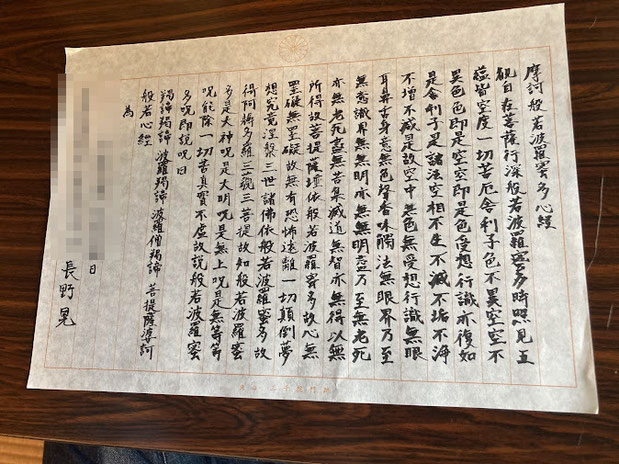 摩訶般若波羅蜜多心経
観自在菩薩行深般若波羅蜜多時照見五
蘊皆空度一切苦厄舎利子色不異空空不
異色色即是空空即是色受想行識亦復如
是舎利子是諸法空相不生不滅不垢不浄
不増不減是故空中無色無受想行識無眼
耳鼻舌身意無色聲香味觸法無眼界乃至
無意識界無無明亦無無明盡乃至無老死
亦無老死盡無苦集滅道無智亦無得以無
所得故菩提薩埵依般若波羅蜜多故心無
罣礙無罣礙故無有恐怖遠離一切顛倒夢
想究竟涅槃三世諸佛依般若波羅蜜多故
得阿耨多羅三藐三菩提故知般若波羅蜜
多是大神呪是大明呪是無上呪是無等等
呪能除一切苦真實不虚故説般若波羅蜜
多呪即説呪曰
羯諦羯諦 波羅羯諦 波羅僧羯諦 菩提薩婆訶
般若心経
為
日
長野晃